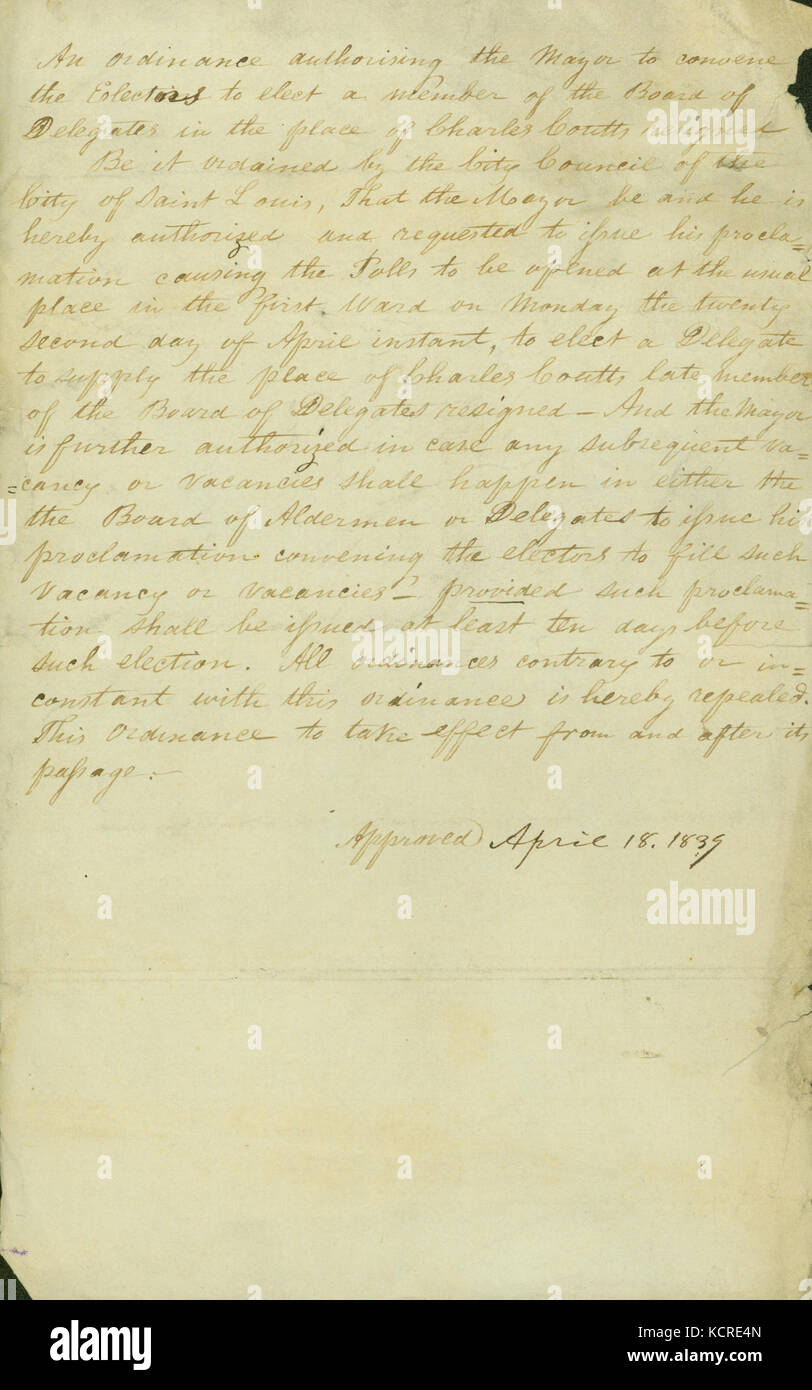 An ordinance authorising the Mayor to convene
the Eclectors to elect a member of the Board of
Delegates in the place of Charles Coutts resigned
Be it ordained by the City Council of the
City of Saint Louis, That the Mayor be and he is
hereby authorized and requested to issue his procla=
mation causing the Polls to be opened at the usual
place in the first Ward on Monday the twenty
second day of April instant, to elect a Delegate
to supply the place of Charles Coutts late member
of the Board of Delegates resigned — And the Mayor
is further authorized in case any subsequent va=
=cancy or vacancies shall happen in either the
the Board of Aldermen or Delegates to issue his
proclamation convening the electors to fill such
vacancy or vacancies — provided such proclama=
tion shall be issued at least ten days before
such election. All ordinances contrary to or in=
constant with this ordinance is hereby repealed.
This Ordinance to take effect from and after its
passage.—
Approved April 18. 1839
alamy
a
a
a
a
alamy
Image ID: KCRE4N
www.alamy.com